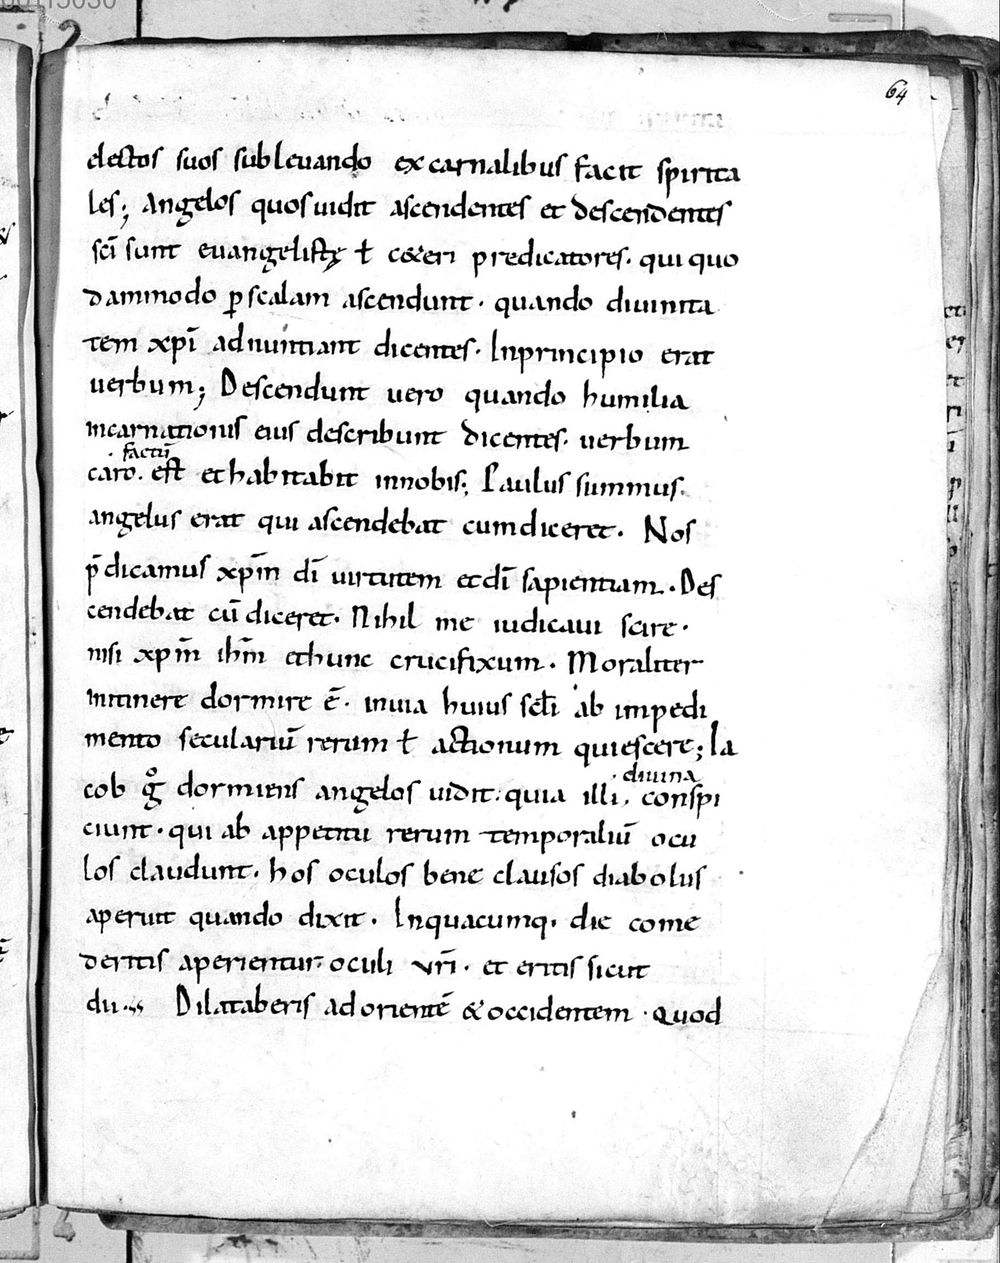 64
electos suos subleuando ex carnalibus facit spirita
les; Angelos quos uidit ascendentes et descendentes
sc̄i sunt euangelistę ł c&eri predicatores. qui quo
dammodo ꝑ scalam ascendunt. quando diuinita
tem xp̄i adnuntiant dicentes. Inprincipio erat
uerbum; Descendunt uero quando humilia
incarnationis eius describunt dicentes. uerbum
factū
caro. est et habitabit innobis; Paulus summus.
angelus erat qui ascendebat cum diceret. Nos
p̄dicamus xp̄m dī uirtutem et dī sapientiam. Des
cendebat cū diceret. Nihil me iudicaui scire.
nisi xp̄m ih̄m et hunc crucifixum. Moraliter
initinere dormire ē. inuia huius scłi ab impedi
mento seculariū rerum ł actionum quiescere; Ia
diuina
cob g̊ dormiens angelos uidit. quia illi. conspi
ciunt. qui ab appetitu rerum temporaliū ocu
los claudunt. hos oculos bene clausos diabolus
aperuit quando dixit. Inquacumq. die come
deritis aperientur oculi vr̄i. et eritis sicut
dii. Dilataberis ad orientē & occidentem. Quod